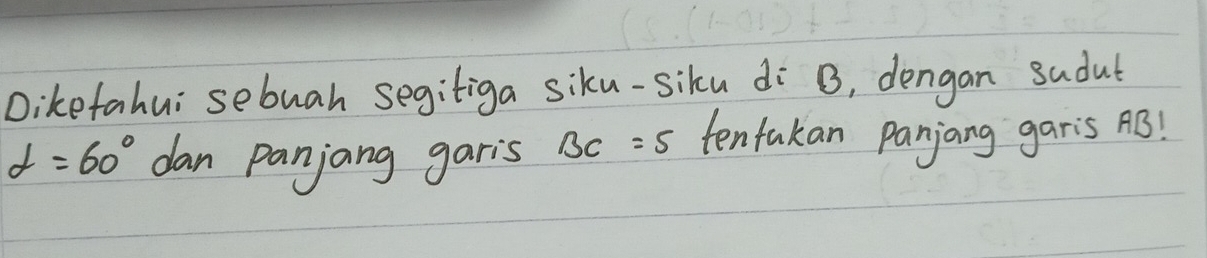 Diketahui sebuah segitiga siku-siku di B, dengan sudut
α = 60° dan panjang garis BC = 5 tentukan panjang garis AB!